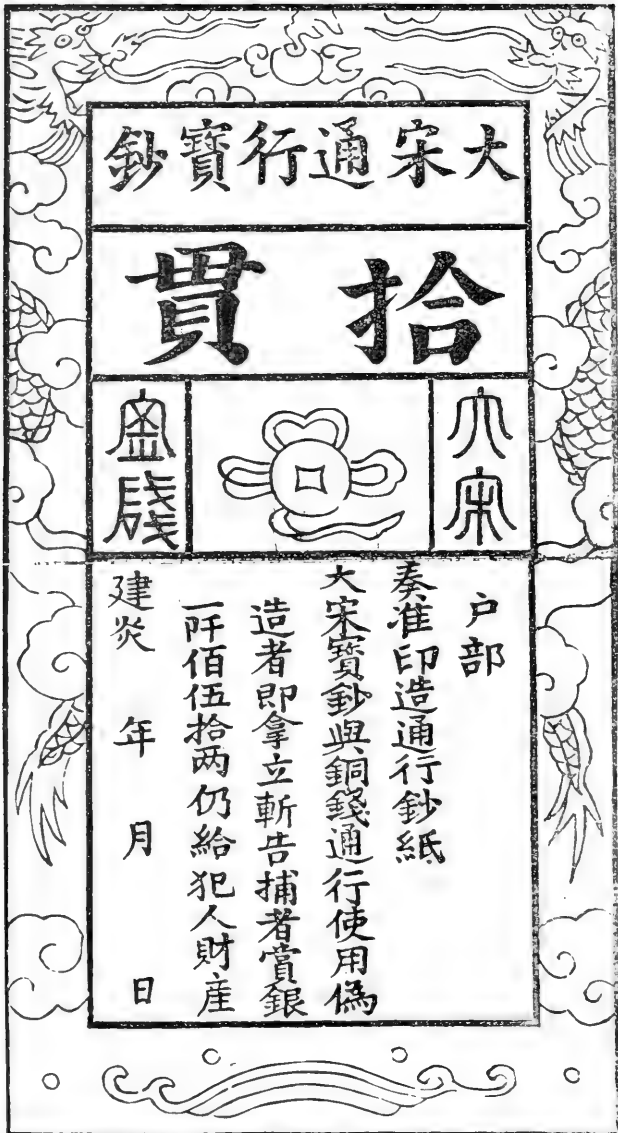 大宋通行寶鈔
拾貫
大宋
户部
奏准印造通行鈔紙
大宋寶鈔與銅錢通行使用偽
造者即拿立斬告捕者賞銀
一阡佰伍拾两仍給犯人財産
建炎 年 月 日